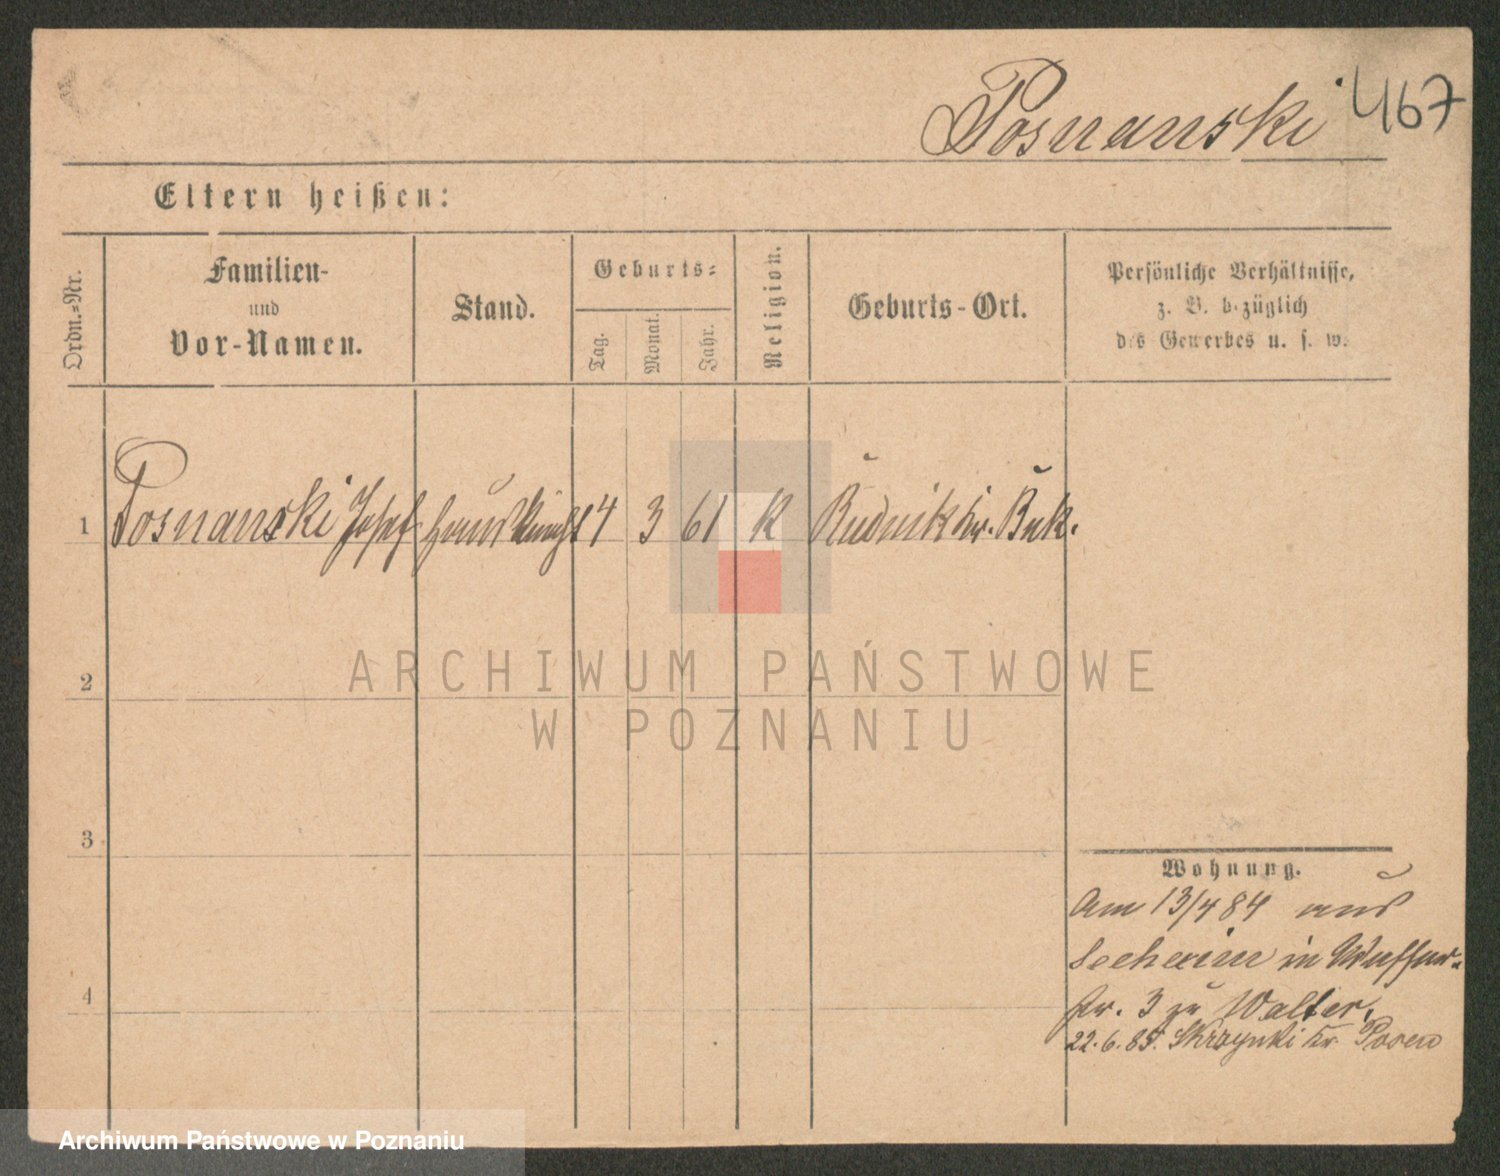 Posnanski
467
Eltern heißen:
Ordn.-Nr.
Familien-
und
Vor-Namen.
Stand.
Geburts-
Tag.
Monat.
Jahr.
Religion.
Geburts-Ort.
Persönliche Verhältnisse,
z. B. bezüglich
des Gewerbes u. s. w.
1 Posnanski Josef Hausknecht 14 3 61 K Rudnik Kr. Buk.
2
3
4
Wohnung.
Am 13/4 84 aus
Seeheim in Wasser-
str. 3 zu Walter.
22.6.85. Skrzynki Kr. Posen
ARCHIWUM PAŃSTWOWE
W POZNANIU
Archiwum Państwowe w Poznaniu